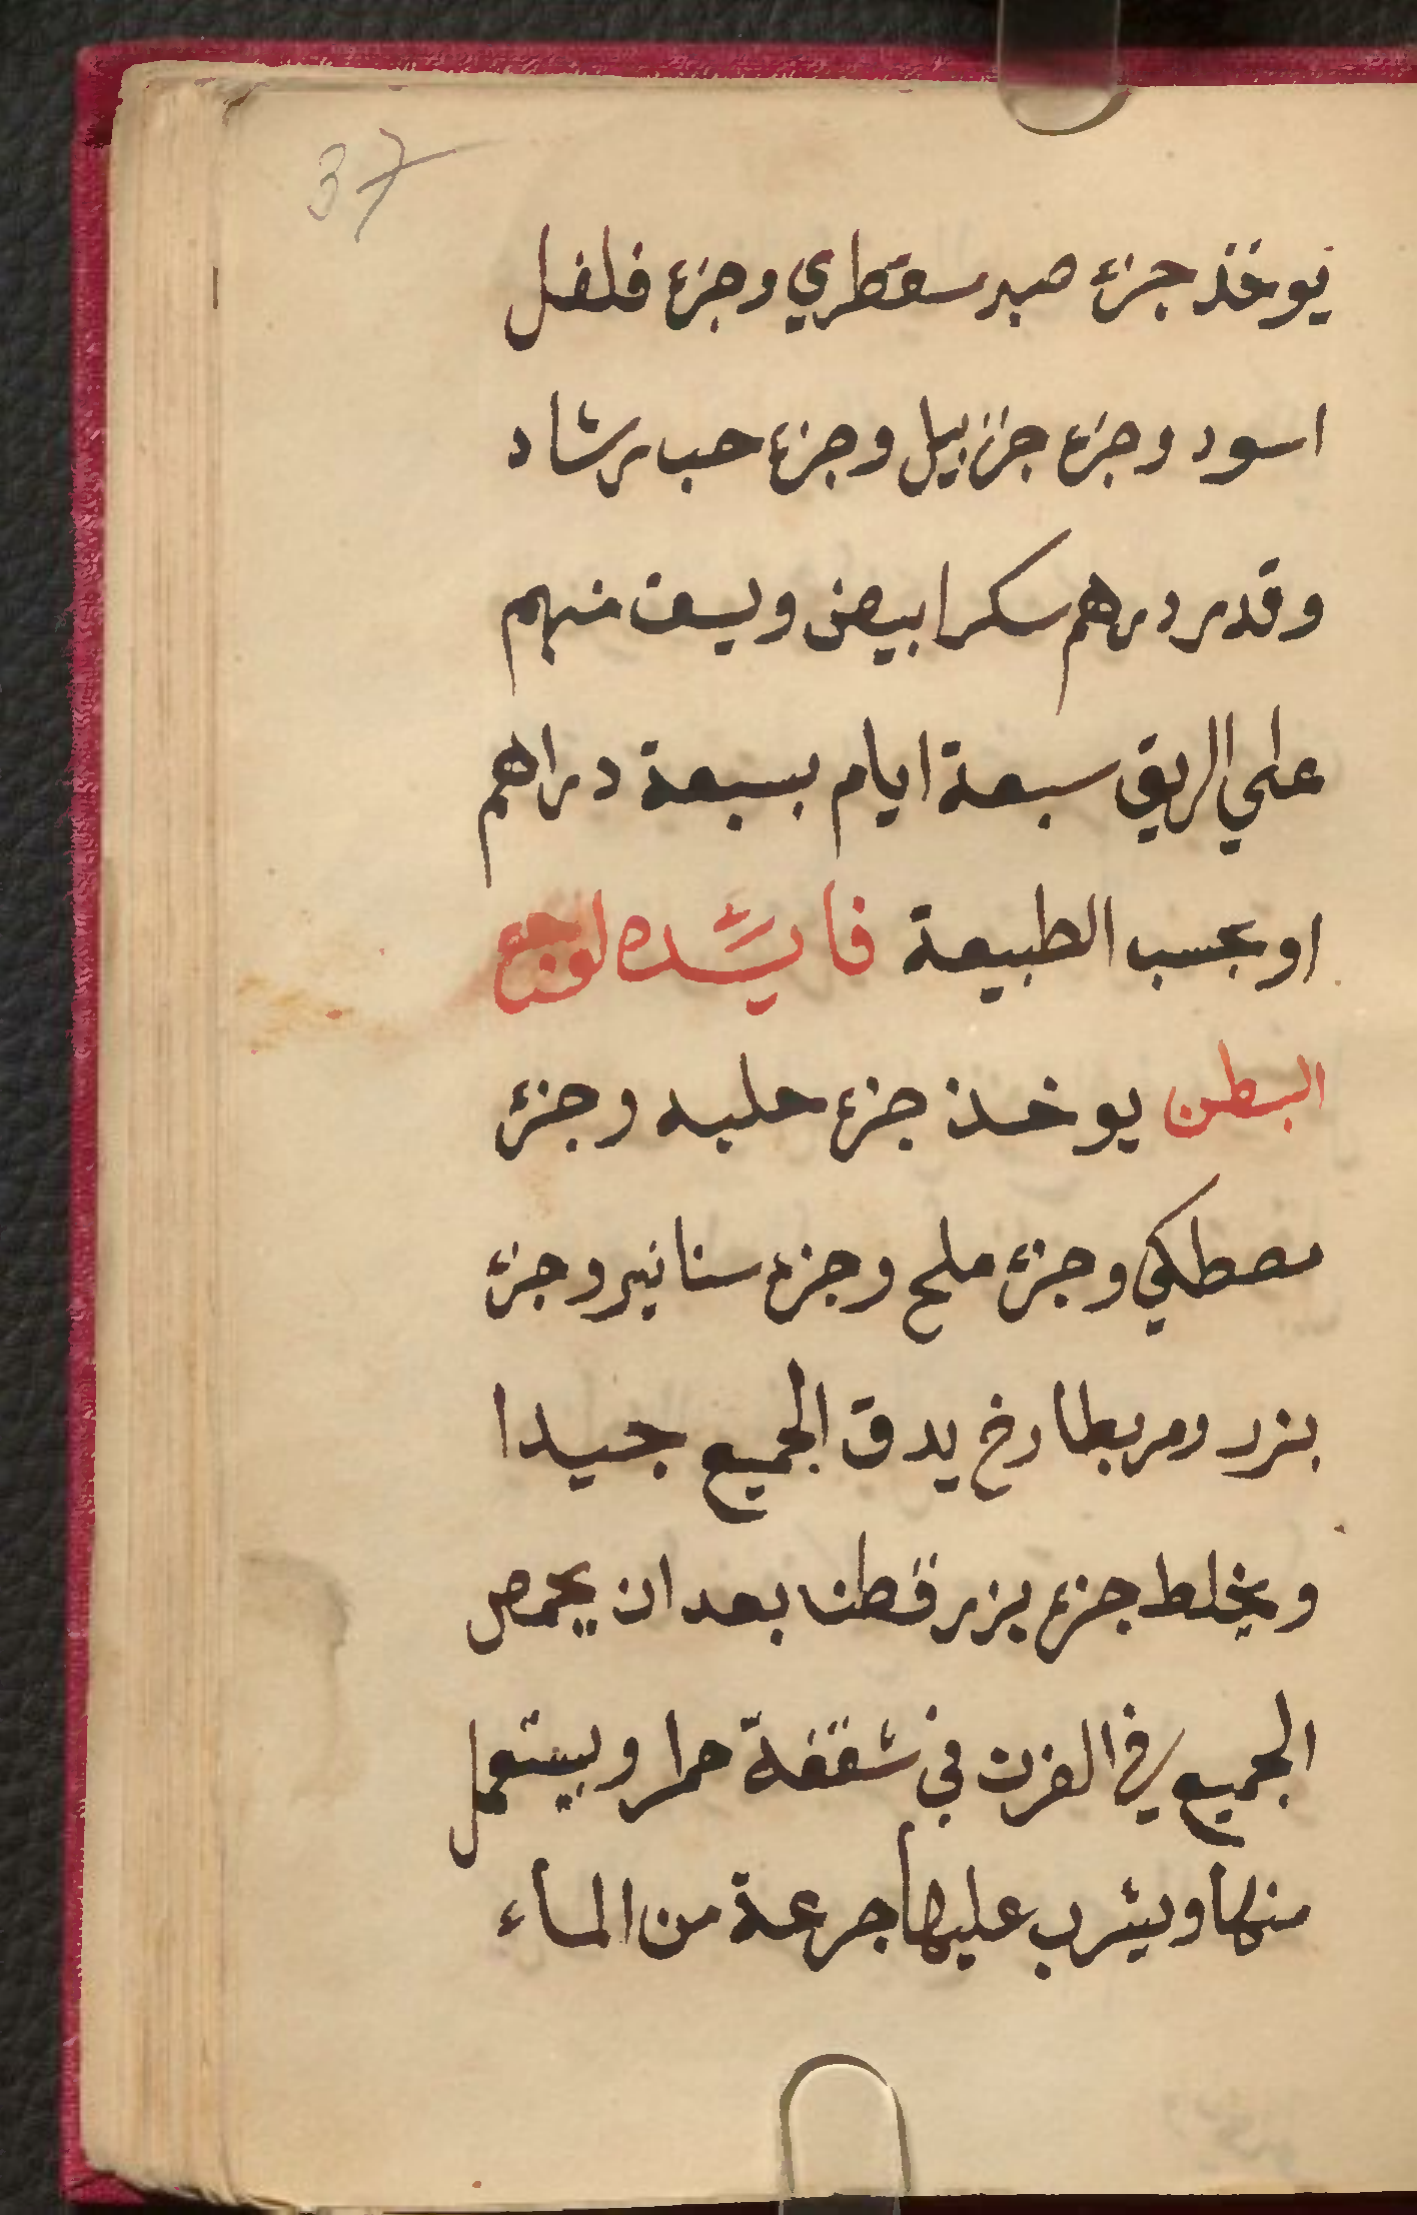 37
يوخذ جزء صبر سقطري وجزء فلفل
اسود وجزء جنزبيل وجزء حب رشاد
وقدر درهم سكر ابيض ويسف منهم
علي الريق سبعة ايام بسبعة دراهم
او بحسب الطبيعة فايسّده لوجع
البطن يوخذ جزء حلبه وجزء
مصطكي وجزء ملح وجزء سنانير وجزء
بزر ومر بطارخ يدق الجميع جيدا
ويخلط جزء بزر قطنا بعد ان يحمص
الجميع في الفرن في شقفة حمرا ويستعمل
منها ويشرب عليها جرعة من الماء